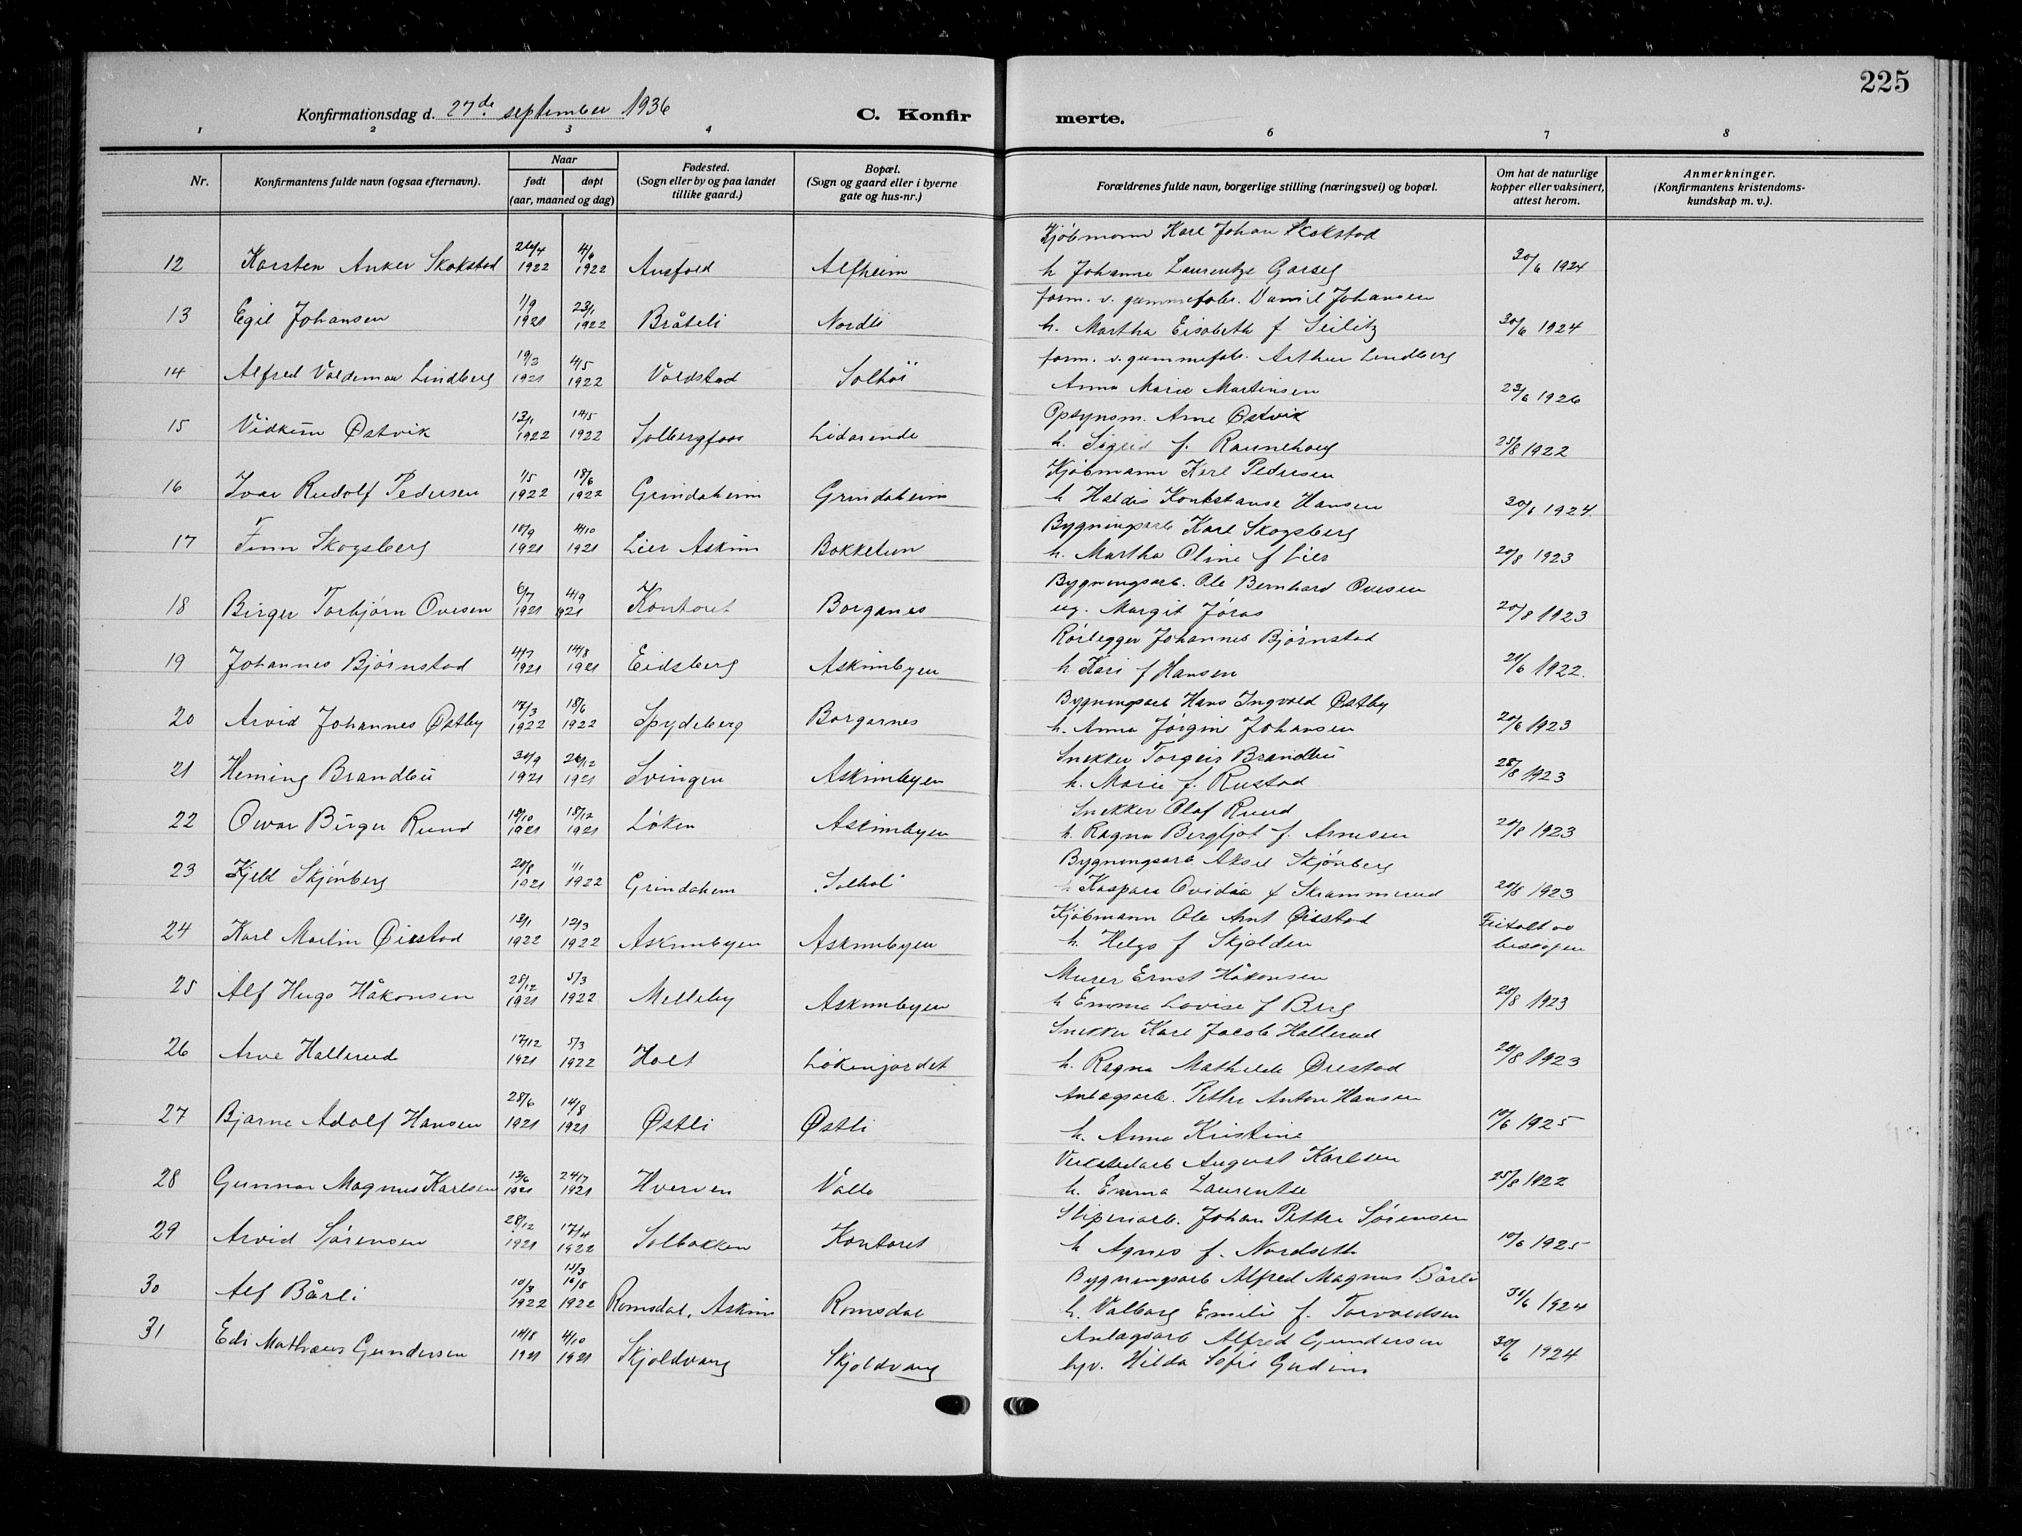 225
Konfirmationsdag d. 27de september 1936
C. Konfirmerte.
1 2 3 4 5 6 7 8
Nr.
Konfirmantens fulde navn (ogsaa efternavn).
Naar
født
døpt
(aar, maaned og dag)
Fødested.
(Sogn eller by og paa landet
tillike gaard.)
Bopæl.
(Sogn og gaard eller i byerne
gate og hus-nr.)
Forældrenes fulde navn, borgerlige stilling (næringsvei) og bopæl.
Om hat de naturlige
kopper eller vaksinert,
attest herom.
Anmerkninger.
(Konfirmantens kristendoms-
kundskap m. v.).
Kjøbmann Karl Johan Skokstad
12 Karsten Anker Skokstad 26/4 1922 4/6 1922 Ausfold Alfheim h Johanne Laurentze Garseg 30/6 1924
form. v. gummifabr. Daniel Johansen
13 Egil Johansen 1/9 1921 23/1 1922 Bråteli Nordli h. Martha Elisabeth f Seilitz 30/6 1924
form. v. gummifabr. Arthur Lindberg
14 Alfred Valdemar Lindberg 19/3 1921 4/5 1922 Voldstad Solhöi Anna Marie Martinsen 23/6 1926
Opsynsm. Arne Østvik
15 Vidkun Østvik 13/1 1922 14/5 1922 Solbergfoss Lidarende h. Sigrid f. Rannehaug 25/8 1922
Kjøbmann Karl Pedersen
16 Ivar Rudolf Pedersen 1/5 1922 18/6 1922 Grindaheim Grindaheim h Haldis Konstanse Hansen 30/6 1924.
Bygningsarb Karl Skogsberg
17 Finn Skogsberg 18/9 1921 4/10 1921 Lier Askim Bakketun h. Martha Oline f Lier 20/8 1923
Bygningsarb. Ole Bernhard Ovesen
18 Birger Torbjørn Ovesen 6/7 1921 4/9 1921 Kontoret Borganes ug. Margit Jøras 20/8 1923
Rørlegger Johannes Bjørnstad
19 Johannes Bjørnstad 4/7 1921 14/8 1921 Eidsberg Askimbyen h Kari f Hansen 21/6 1922.
Bygningsarb Hans Ingvald Østby
20 Arvid Johannes Østby 17/3 1922 18/6 1922 Spydeberg Borgarnes h. Anna Jørgine Johansen 20/6 1923
Snekker Torgeir Brandbu
21 Heming Brandbu 30/9 1921 26/12 1921 Svingen Askimbyen h. Marie f. Rustad 28/8 1923
Snekker Olaf Ruud
22 Ovar Birger Ruud 18/10 1921 18/12 1921 Løken Askimbyen h. Ragna Bergljot f. Arnesen 20/8 1923
Bygningsarb. Aksel Skjønberg
23 Kjeld Skjønberg 20/8 1921 1/1 1922 Grindahem Solhöi h Kaspara Ovidia f Skrammerud 20/8 1923
Kjøbmann Ole Arnt Øiestad
24 Karl Martin Øiestad 13/1 1922 12/3 1922 Askimbyen Askimbyen h. Helga f Skjolden Fritatt av
Murer Ernst Håkonsen
25 Alf Hugo Håkonsen 25/12 1921 5/3 1922 Melleby Askimbyen h Emma Lovise f Berg 20/8 1923
Snekker Karl Jacob Hallerud
26 Arve Hallerud 17/12 1921 5/3 1922 Holt Løkenjordet h. Ragna Mathilde Ørestad 20/8 1923
Anlægsarb. Petter Anton Hansen
27 Bjarne Adolf Hansen 28/6 1921 14/8 1921 Østli Østli h. Anna Kristine 10/6 1925
Verkstedarb August Karlsen
28 Gunnar Magnus Karlsen 13/6 1921 24/7 1921 Hverven Valle h. Emma Laurentse 25/8 1922
Sliperiarb. Johan Petter Sørensen
29 Arvid Sørensen 28/12 1921 17/4 1922 Solbakken Kontoret h Agnes f. Nordseth 10/6 1925
Bygningsarb Alfred Magnus Bårli
30 Alf Bårli 10/3 1922 16/5 1922 Romsdal, Askim Romsdal h. Valborg Emilie f. Torvaldsen 30/6 1924
Anlagsarb Alfred Gundersen
31 Edi Mathæus Gundersen 14/8 1921 4/10 1921 Skjoldvang Skjoldvang h. v. Hilda Sofie Gudim 30/6 1924